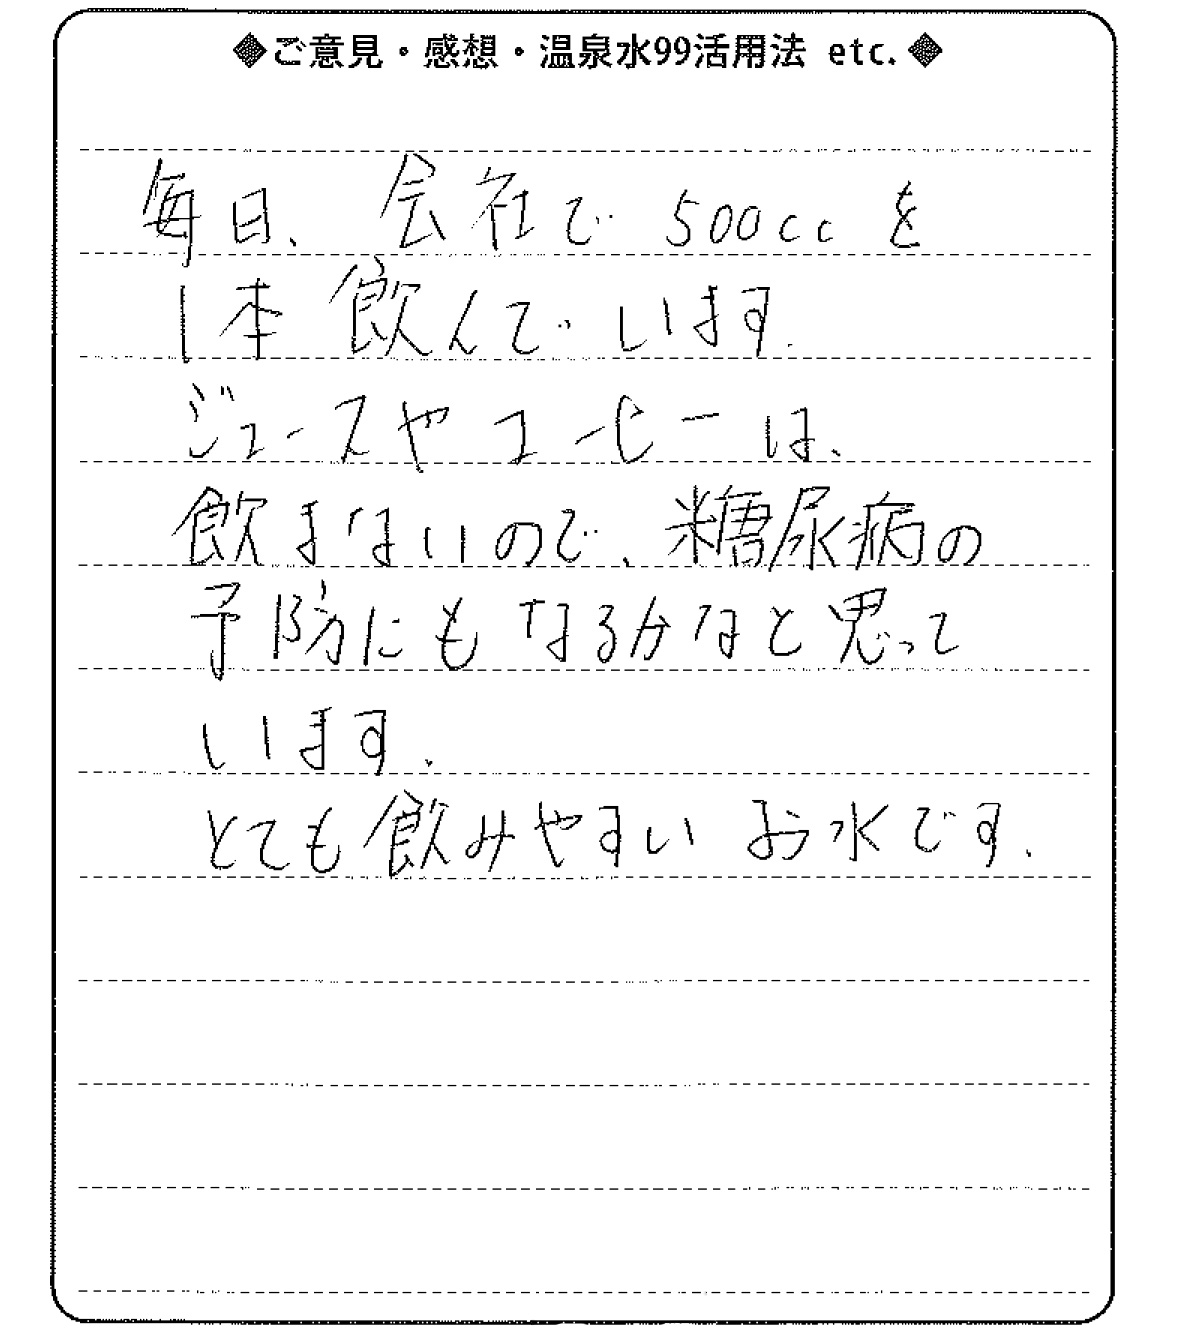 ◆ご意見・感想・温泉水99活用法 etc.◆
毎日、会社で500ccを
1本飲んでいます.
ジュースやコーヒーは、
飲まないので、糖尿病の
予防にもなるかなと思って
います.
とても飲みやすいお水です.